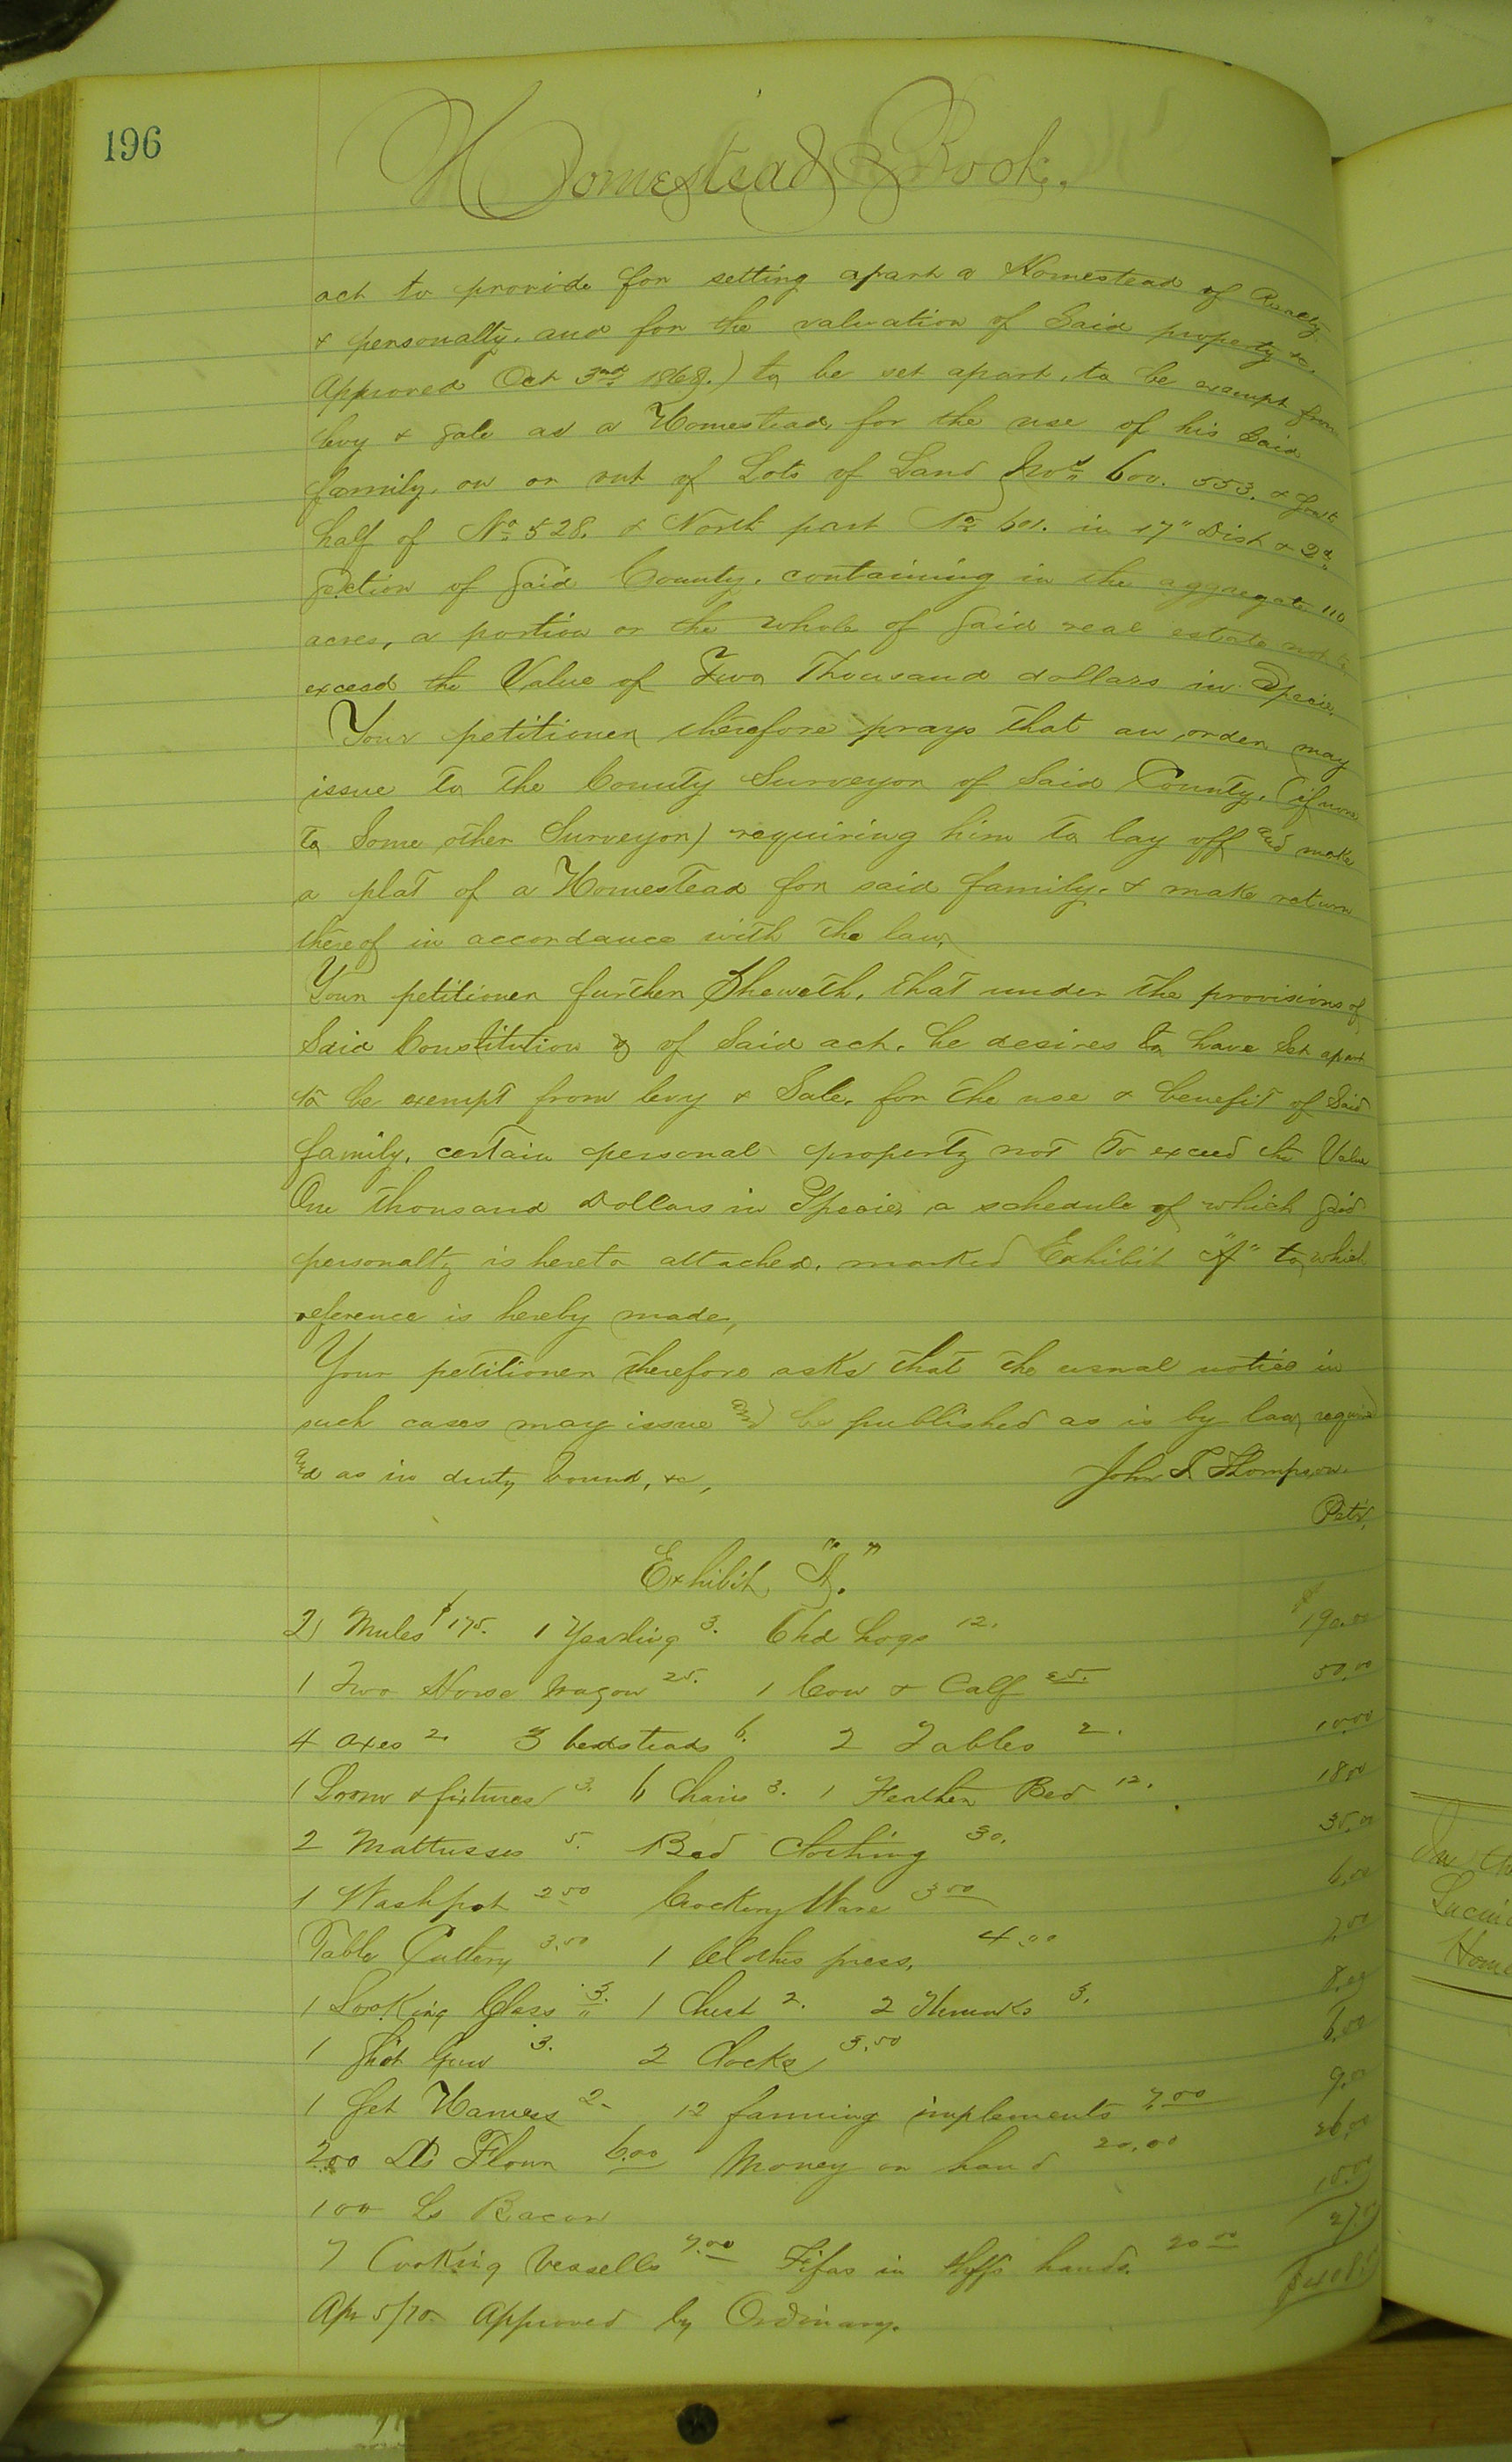 196
Homestead Book.
act to provide for setting apart a Homestead of Realty
& personalty, and for the valuation of Said property &c.
Approved Oct 3rd 1868.) to be set apart, to be exempt from
levy & Sale as a Homestead, for the use of his Said
family, on or out of Lots of Land Nos 600. 553. & South
half of No 528. & North part No 601. in 17" Dist & 2d
Section of Said County, containing in the aggregate 110
acres, a portion or the whole of Said real estate not to
exceed the Value of Two Thousand dollars in Specie.
Your petitioner therefore prays that an order may
issue to the County Surveyor of Said County, (if none
to Some other Surveyor) requiring him to lay off and make
a plat of a Homestead for said family, & make return
thereof in accordance with the law,
Your petitioner further Sheweth, that under the provisions of
Said Constitution & of Said act, he desires to have Set apart
to be exempt from levy & Sale, for the use & benefit of Said
family, certain personal property not to exceed the Value
One thousand Dollars in Specie, a schedule of which Said
personalty is hereto attached, marked Exhibit "A" to which
reference is hereby made,
Your petitioner therefore asks that the usual notice in
such cases may issue and be published as is by law required
and as in duty bound, &c,
John T. Thompson.
Petr.
Exhibit "A."
2 Mules $175. 1 Yearling 3. 6 hd hogs 12. $190.00
1 Two Horse wagon 25. 1 Cow & Calf 25. 50.00
4 axes 2 3 bedsteads 6. 2 Tables 2. 10.00
1 Loom & fixtures 3. 6 Chairs 3. 1 Feather Bed 12. 18.00
2 Mattusses 5. Bed Clothing 30. 35.00
1 Washpot 2.50 Crockery Ware 3.50 6.00
Table Cutlery 3.50 1 Clothes press, 4.00 7.50
1 Looking Glass 3. 1 Chest 2. 2 Trunks 3. 8.00
1 Shot Gun 3. 2 Clocks 3.50 6.50
1 Set Harness 2- 12 farming implements 7.00 9.00
200 lbs Flour 6.00 Money on hand 20.00 26.00
100 Ls Bacon 15.00
7 Cooking Vessells 7.00 Fifas in Shffs hands. 20.00 27.00
Apr 5/70. Approved by Ordinary.
Home